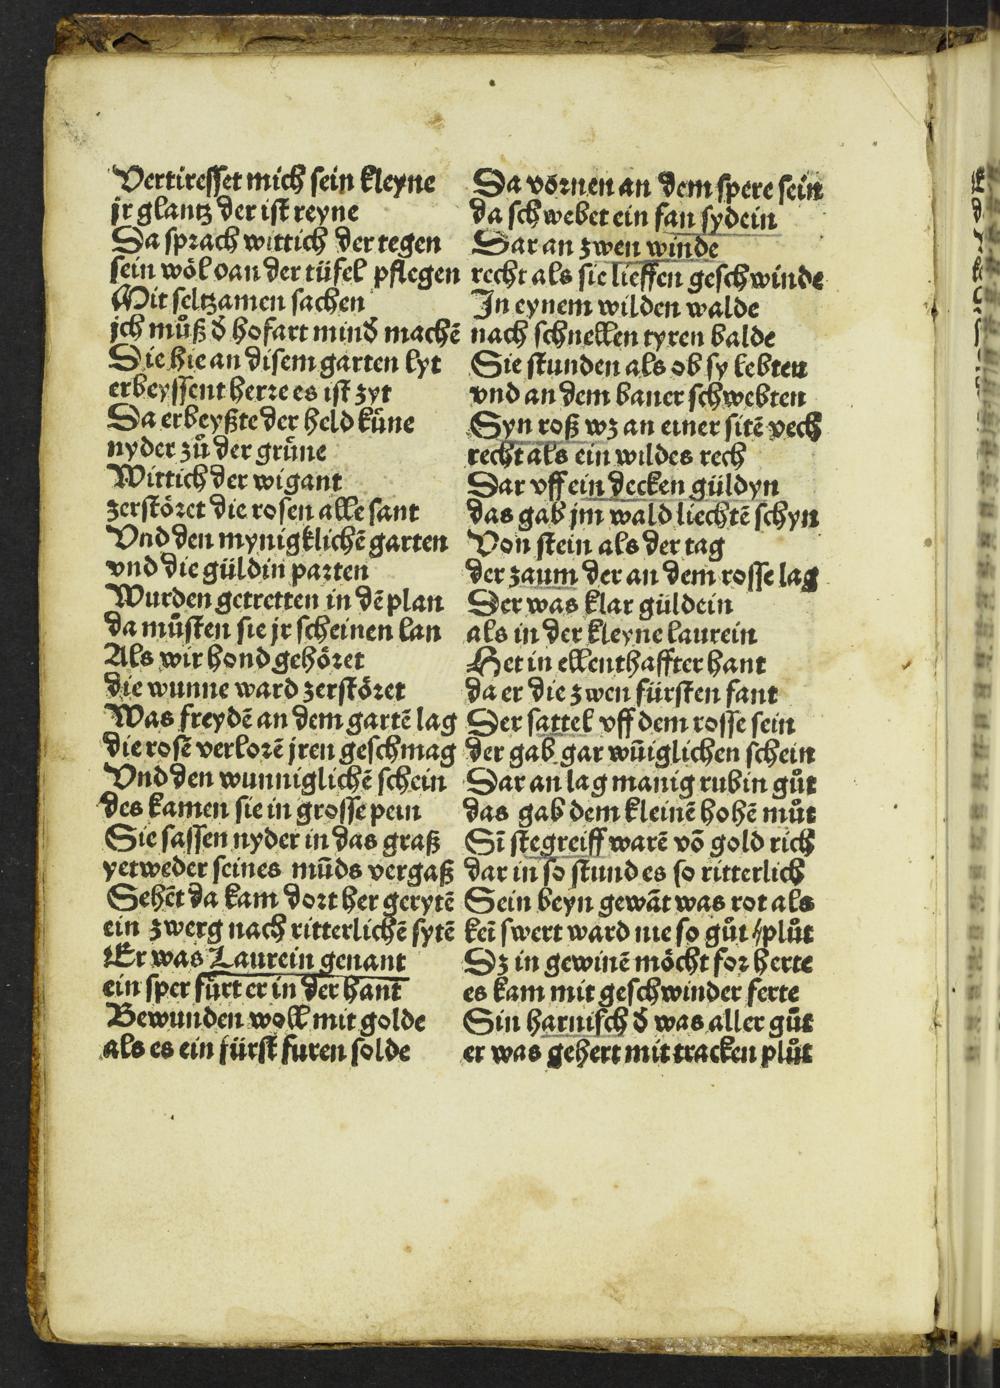 Vertiresset mich sein kleyne
jr glantz der ist reyne
Da sprach wittich der tegen
sein wöl oan der tüfel pflegen
Mit seltzamen sachen
jch můß d̕ hofart mind̕ machē
Die hie an disem garten lyt
erbeyssent herre es ist zyt
Da erbeyßte der held küne
nyder zů der grüne
Wittich der wigant
zerstöret die rosen alle sant
Vnd den mynigklichē garten
vnd die güldin parten
Wurden getretten in dē plan
da můsten sie jr scheinen lan
Als wir hond gehöret
die wunne ward zerstöret
Was freydē an dem gartē lag
die rosē verlorē jren geschmag
Vnd den wunniglichē schein
des kamen sie in grosse pein
Sie sassen nyder in das graß
yetweder seines mūds vergaß
Sehēt da kam dort her gerytē
ein zwerg nach ritterlichē sytē
Er was Laurein genant
ein sper fürt er in der hant
Bewunden woll mit golde
als es ein fürst furen solde
Da vornen an dem spere sein
da schwebet ein fan sydein
Dar an zwen winde
recht als sie lieffen geschwinde
In eynem wilden walde
nach schnellen tyren balde
Sie stunden als ob sy lebten
vnd an dem baner schwebten
Syn roß wz an einer sitē vech
recht als ein wildes rech
Dar vff ein decken güldyn
das gab jm wald liechtē schyn
Von stein als der tag
der zaum der an dem rosse lag
Der was klar güldein
als in der kleyne laurein
Het in ellenthaffter hant
da er die zwen fürsten fant
Der sattel vff dem rosse sein
der gab gar wūiglichen schein
Dar an lag manig rubin gůt
das gab dem kleinē hohē můt
Sī stegreiff warē vō gold rich
dar in so stund es so ritterlich
Sein beyn gewāt was rot als
keī swert ward nie so gůt //plůt
Dz in gewinē möcht for herte
es kam mit geschwinder ferte
Sin harnisch d̕ was aller gůt
er was gehert mit tracken plůt